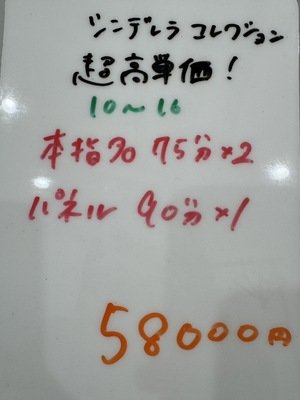 シンデレラコレクション
超高単価！
10～16
本指名 75分×2
パネル 90分×1
58000円